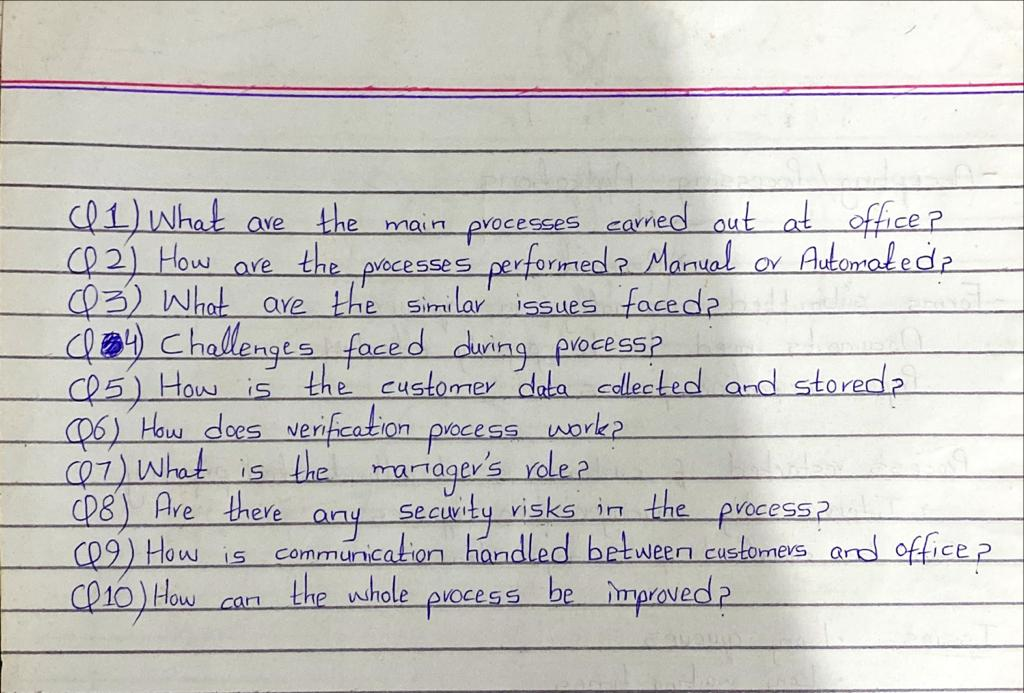 Q1) What are the main processes carried out at office?
Q2) How are the processes performed? Manual or Automated?
Q3) What are the similar issues faced?
Q4) Challenges faced during process?
Q5) How is the customer data collected and stored?
Q6) How does verification process work?
Q7) What is the manager's role?
Q8) Are there any security risks in the process?
Q9) How is communication handled between customers and office?
Q10) How can the whole process be improved?